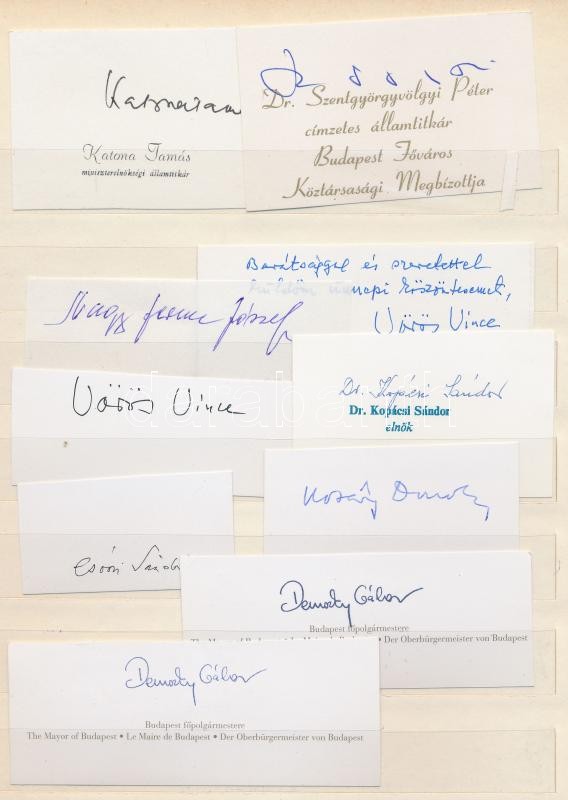 Katona Tamás
miniszterelnökségi államtitkár
Dr. Szentgyörgyvölgyi Péter
címzetes államtitkár
Budapest Főváros
Köztársasági Megbízottja
Barátsággal és szeretettel
küldöm napi köszöntésemet,
Vörös Vince
Nagy Ferenc József
Vörös Vince
Dr. Kopácsi Sándor
Dr. Kopácsi Sándor
elnök
Kosáry Domokos
Csoóri Sándor
Demszky Gábor
Budapest főpolgármestere
The Mayor of Budapest • Le Maire de Budapest • Der Oberbürgermeister von Budapest
Demszky Gábor
Budapest főpolgármestere
The Mayor of Budapest • Le Maire de Budapest • Der Oberbürgermeister von Budapest
darabanth